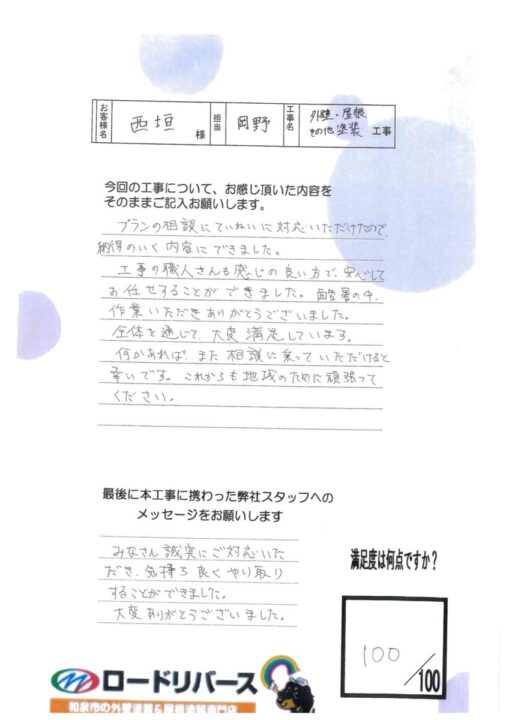 お客様名 西垣 様 担当 岡野 工事名 外壁・屋根
その他塗装 工事
今回の工事について、お感じ頂いた内容を
そのままご記入お願いします。
プランの相談にていねいに対応いただけたので
納得のいく内容にできました。
工事の職人さんも感じの良い方で、安心して
お任せすることができました。酷暑の中、
作業いただきありがとうございました。
全体を通じて、大変満足しています。
何かあれば、また相談に乗っていただけると
幸いです。これからも地域のために頑張って
ください。
最後に本工事に携わった弊社スタッフへの
メッセージをお願いします
みなさん誠実にご対応いた
だき、気持ち良くやり取り
することができました。
大変ありがとうございました。
満足度は何点ですか？
100
/100
ロードリバース
和泉市の外壁塗装&屋根塗装専門店